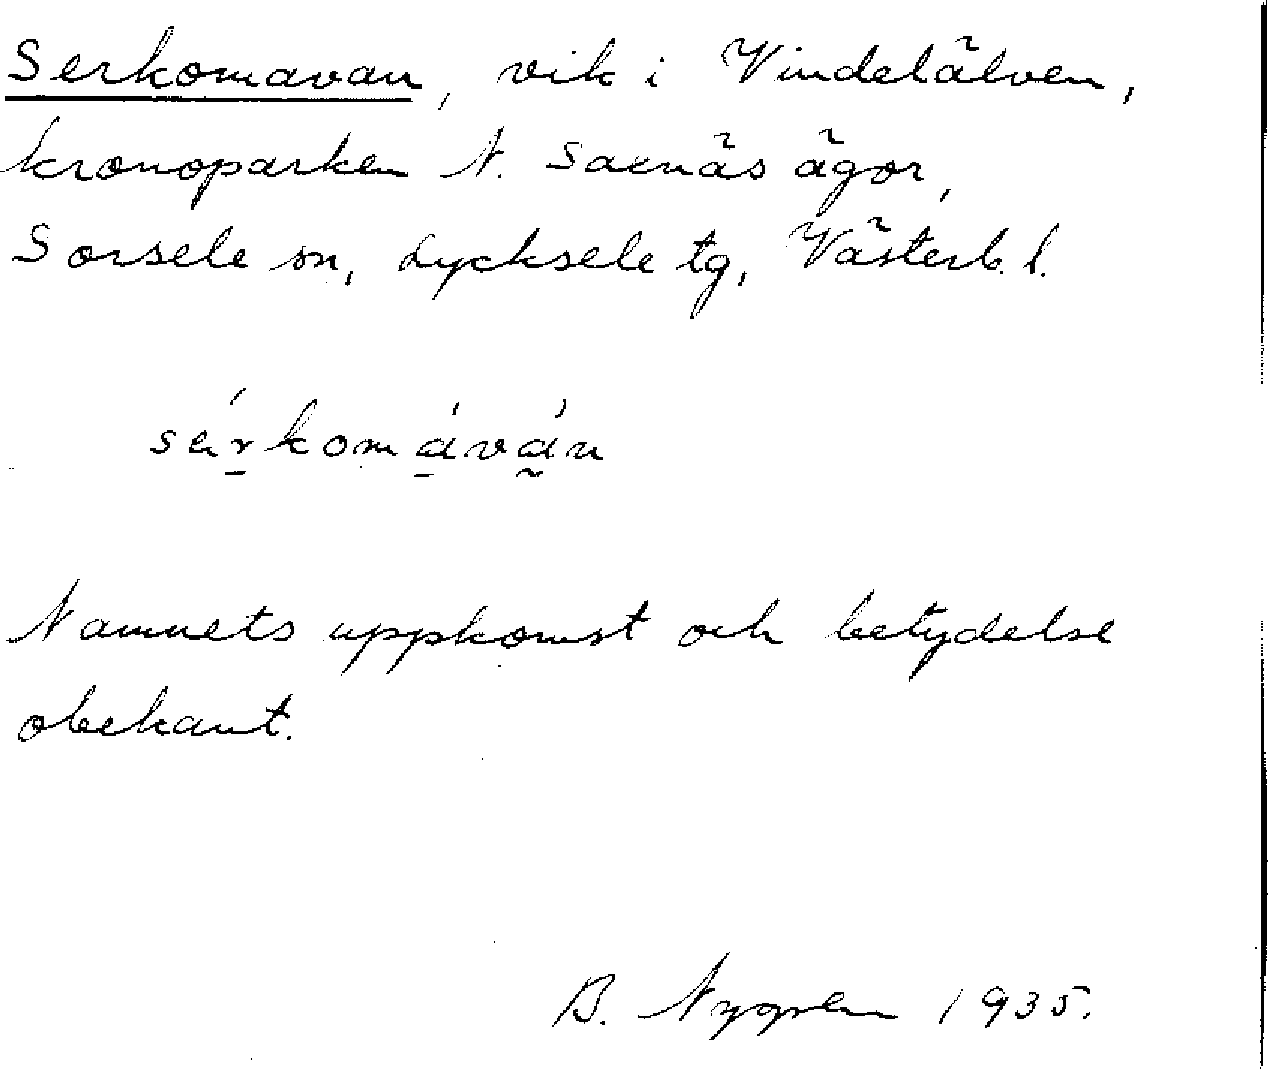 Serkomavan, vik i Vindelälven,
kronoparken N. Saxnäs ägor,
Sorsele sn, Lycksele tg, Västerb. l.
Namnets uppkomst och betydelse
obekant.
B. Nygren 1935.